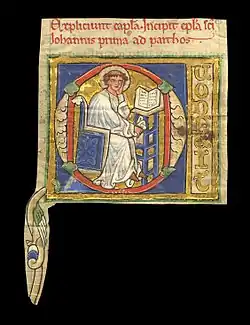 Expliciunt capla. Incipit epla sci
Iohannis prima ad parthos.